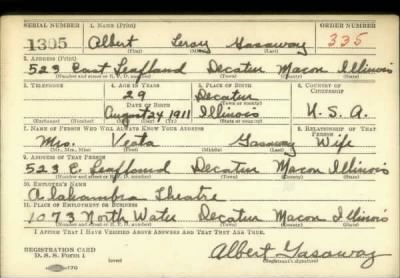 SERIAL NUMBER 1. NAME (Print) ORDER NUMBER
1305 Albert Leroy Gasaway 335
(First) (Middle) (Last)
2. ADDRESS (Print)
523 East Leafland Decatur Macon Illinois
(Number and street or R. F. D. number) (Town) (County) (State)
3. TELEPHONE 4. AGE IN YEARS 5. PLACE OF BIRTH 6. COUNTRY OF CITIZENSHIP
29 Decatur
DATE OF BIRTH (Town or county)
August 24 1911 Illinois U. S. A.
(Exchange) (Number) (Mo.) (Day) (Yr.) (State or country)
7. NAME OF PERSON WHO WILL ALWAYS KNOW YOUR ADDRESS 8. RELATIONSHIP OF THAT PERSON
Mrs. Gasaway Wife
(Mr., Mrs., Miss) (First) (Middle) (Last)
9. ADDRESS OF THAT PERSON
523 E. Leafland Decatur Macon Illinois
(Number and street or R. F. D. number) (Town) (County) (State)
10. EMPLOYER'S NAME
Alahambra Theatre
11. PLACE OF EMPLOYMENT OR BUSINESS
1073 North Water Decatur Macon Illinois
(Number and street or R. F. D. number) (Town) (County) (State)
I AFFIRM THAT I HAVE VERIFIED ABOVE ANSWERS AND THAT THEY ARE TRUE.
REGISTRATION CARD
D. S. S. Form 1 Albert Gasaway
(Registrant's signature)